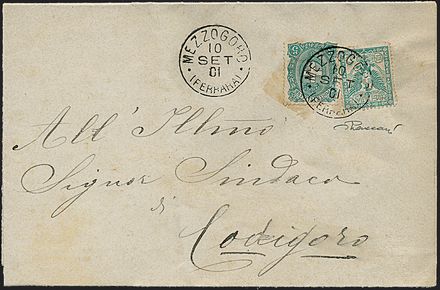 MEZZOGORO
10
SET
01
(FERRARA)
MEZZOGORO
10
SET
01
(FERRARA)
All' Illmo
Signor Sindaco
di
Codigoro